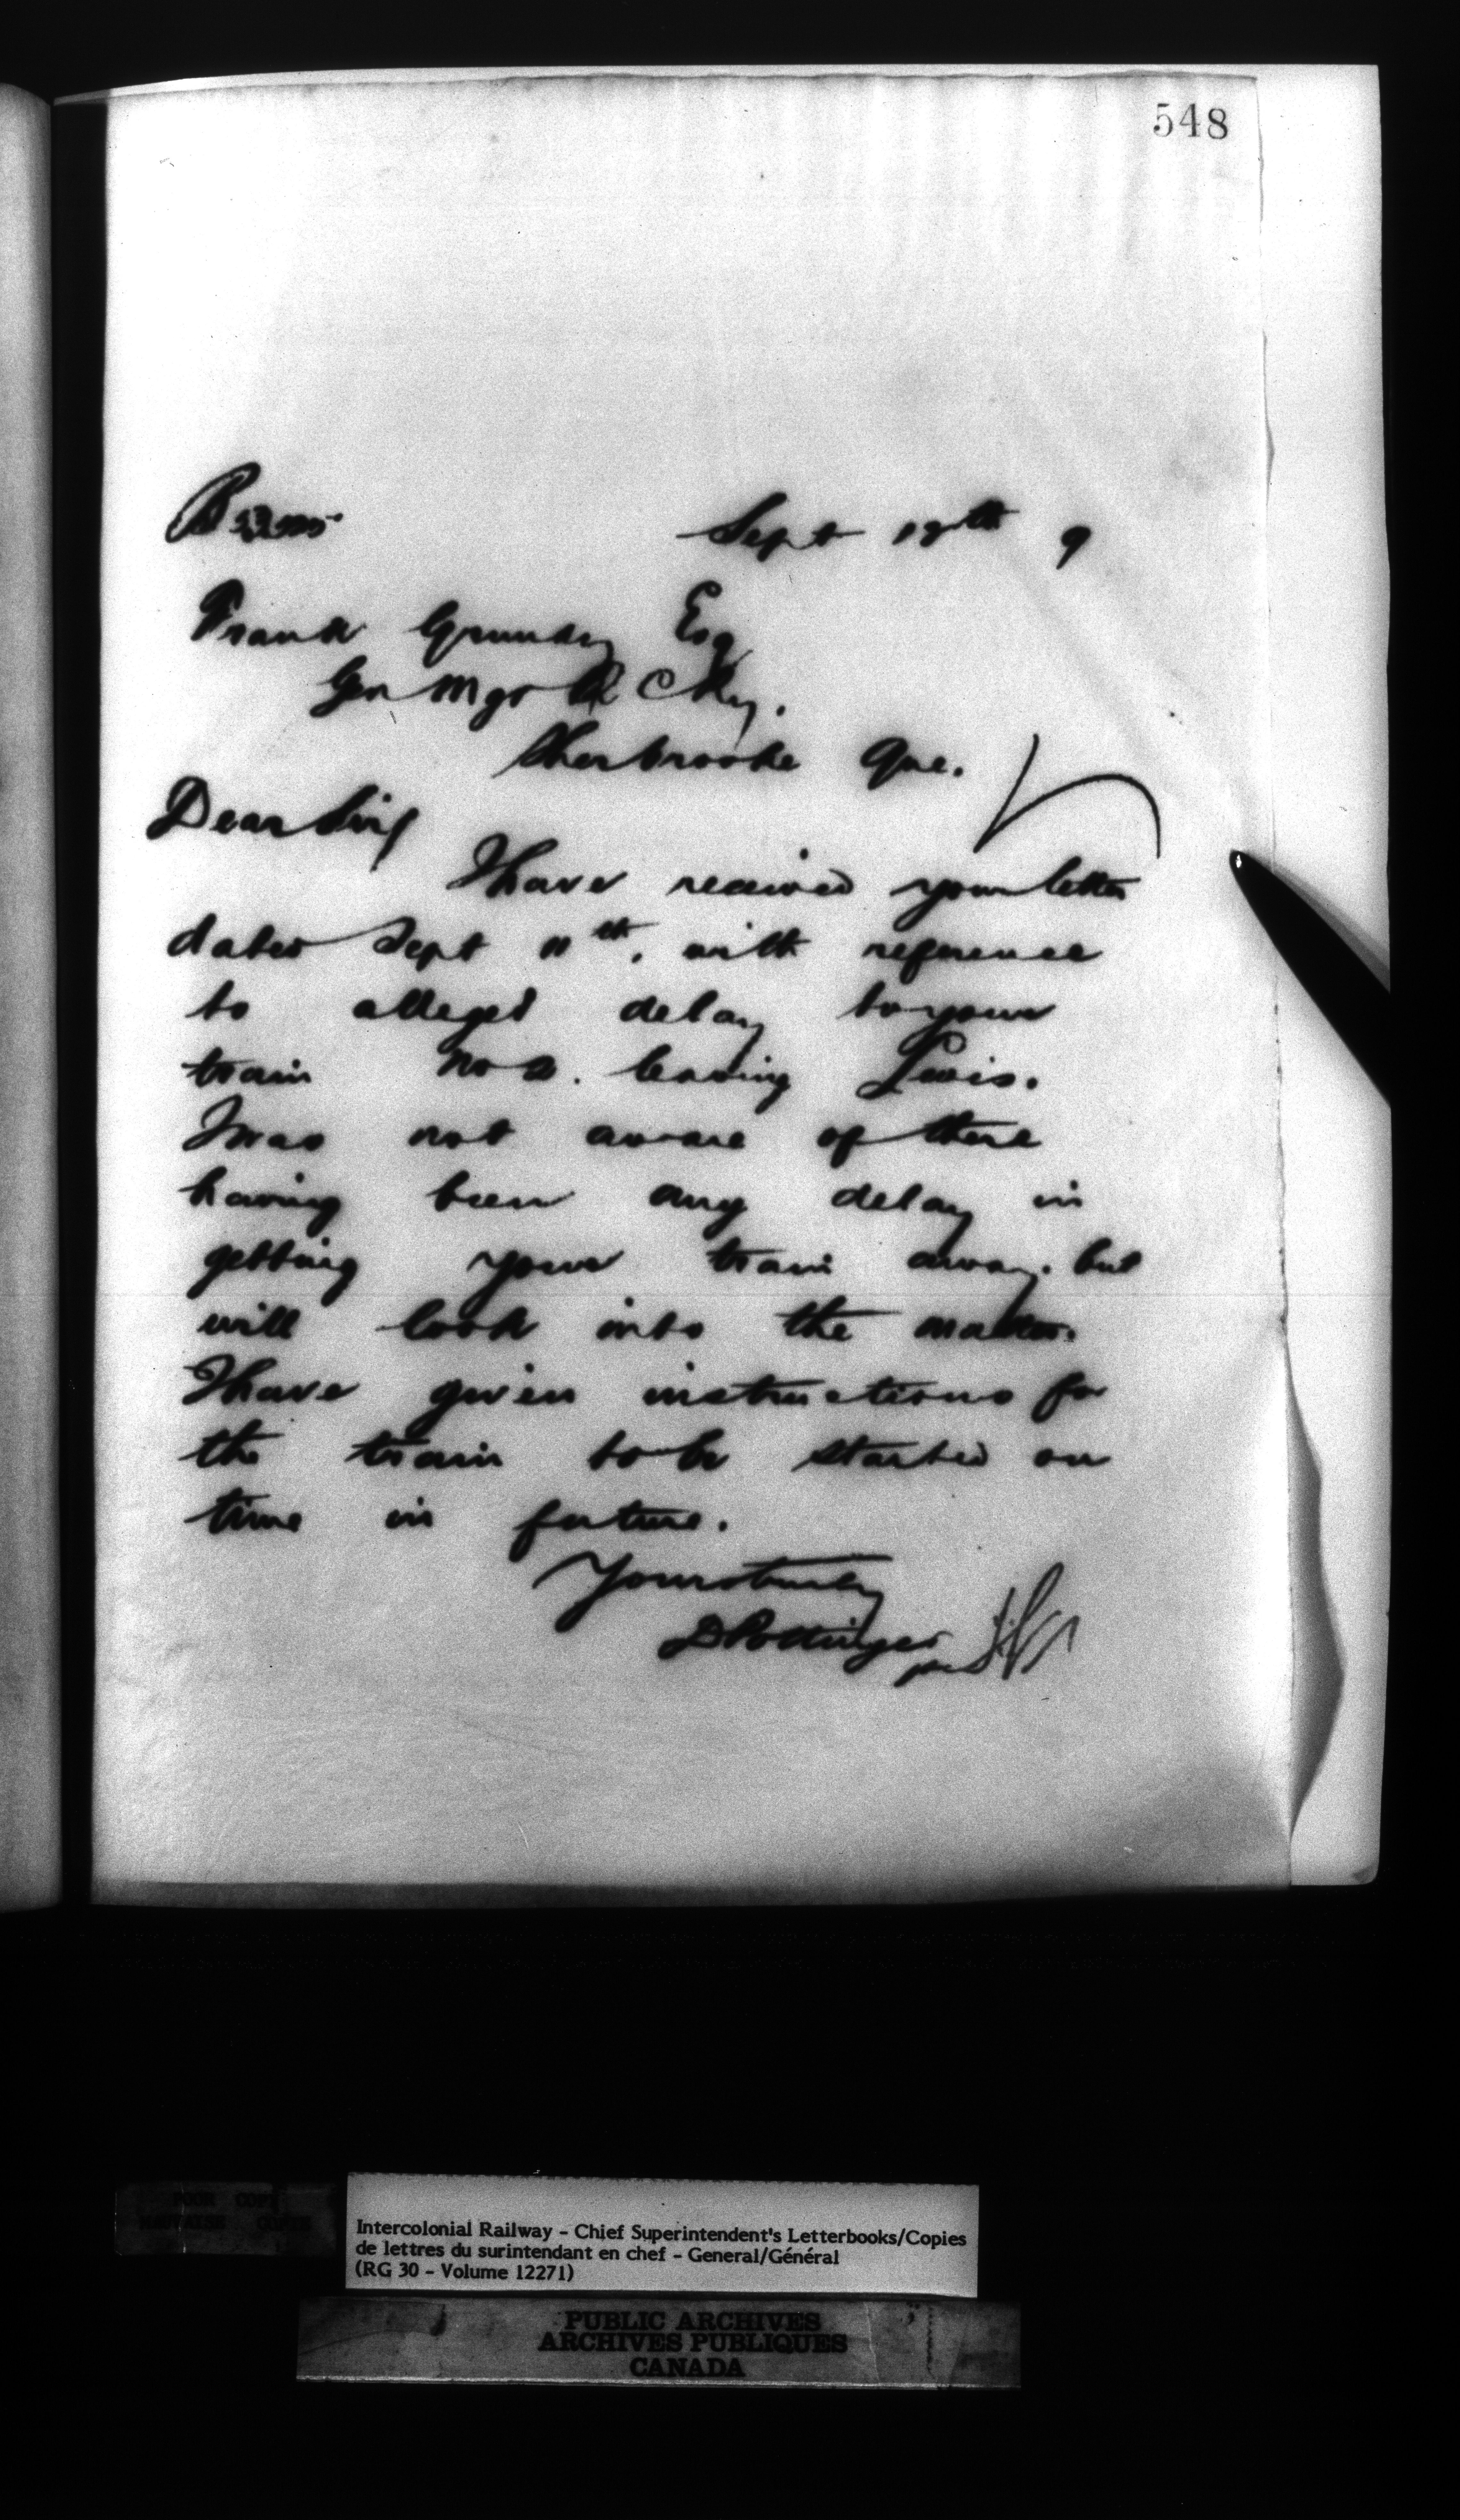 548
Sept 18th 9
Frank Grundy Esq
Gen Mgr Q C Ry.
Sherbrooke Que.
Dear Sir
I have received your letter
dated Sept 11th, with reference
to alleged delay to your
train No 2. leaving Levis.
I was not aware of there
having been any delay in
getting your train away. but
will look into the matter.
I have given instructions for
the train to be started on
time in future.
Yours truly
D Pottinger
per
POOR COPY
MAUVAISE COPIE
Intercolonial Railway - Chief Superintendent's Letterbooks/Copies
de lettres du surintendant en chef - General/Général
(RG 30 - Volume 12271)
PUBLIC ARCHIVES
ARCHIVES PUBLIQUES
CANADA